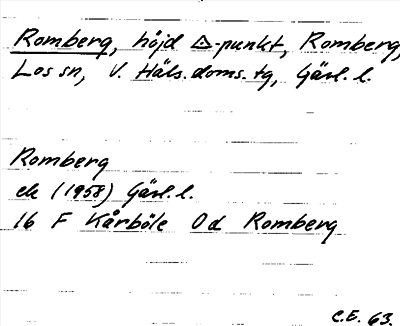 Romberg, höjd △-punkt, Romberg,
Los sn, V. Häls. doms. tg, Gävl. l.
Romberg
ek (1958) Gävl. l.
16 F Kårböle 0d Romberg
C.E. 63.